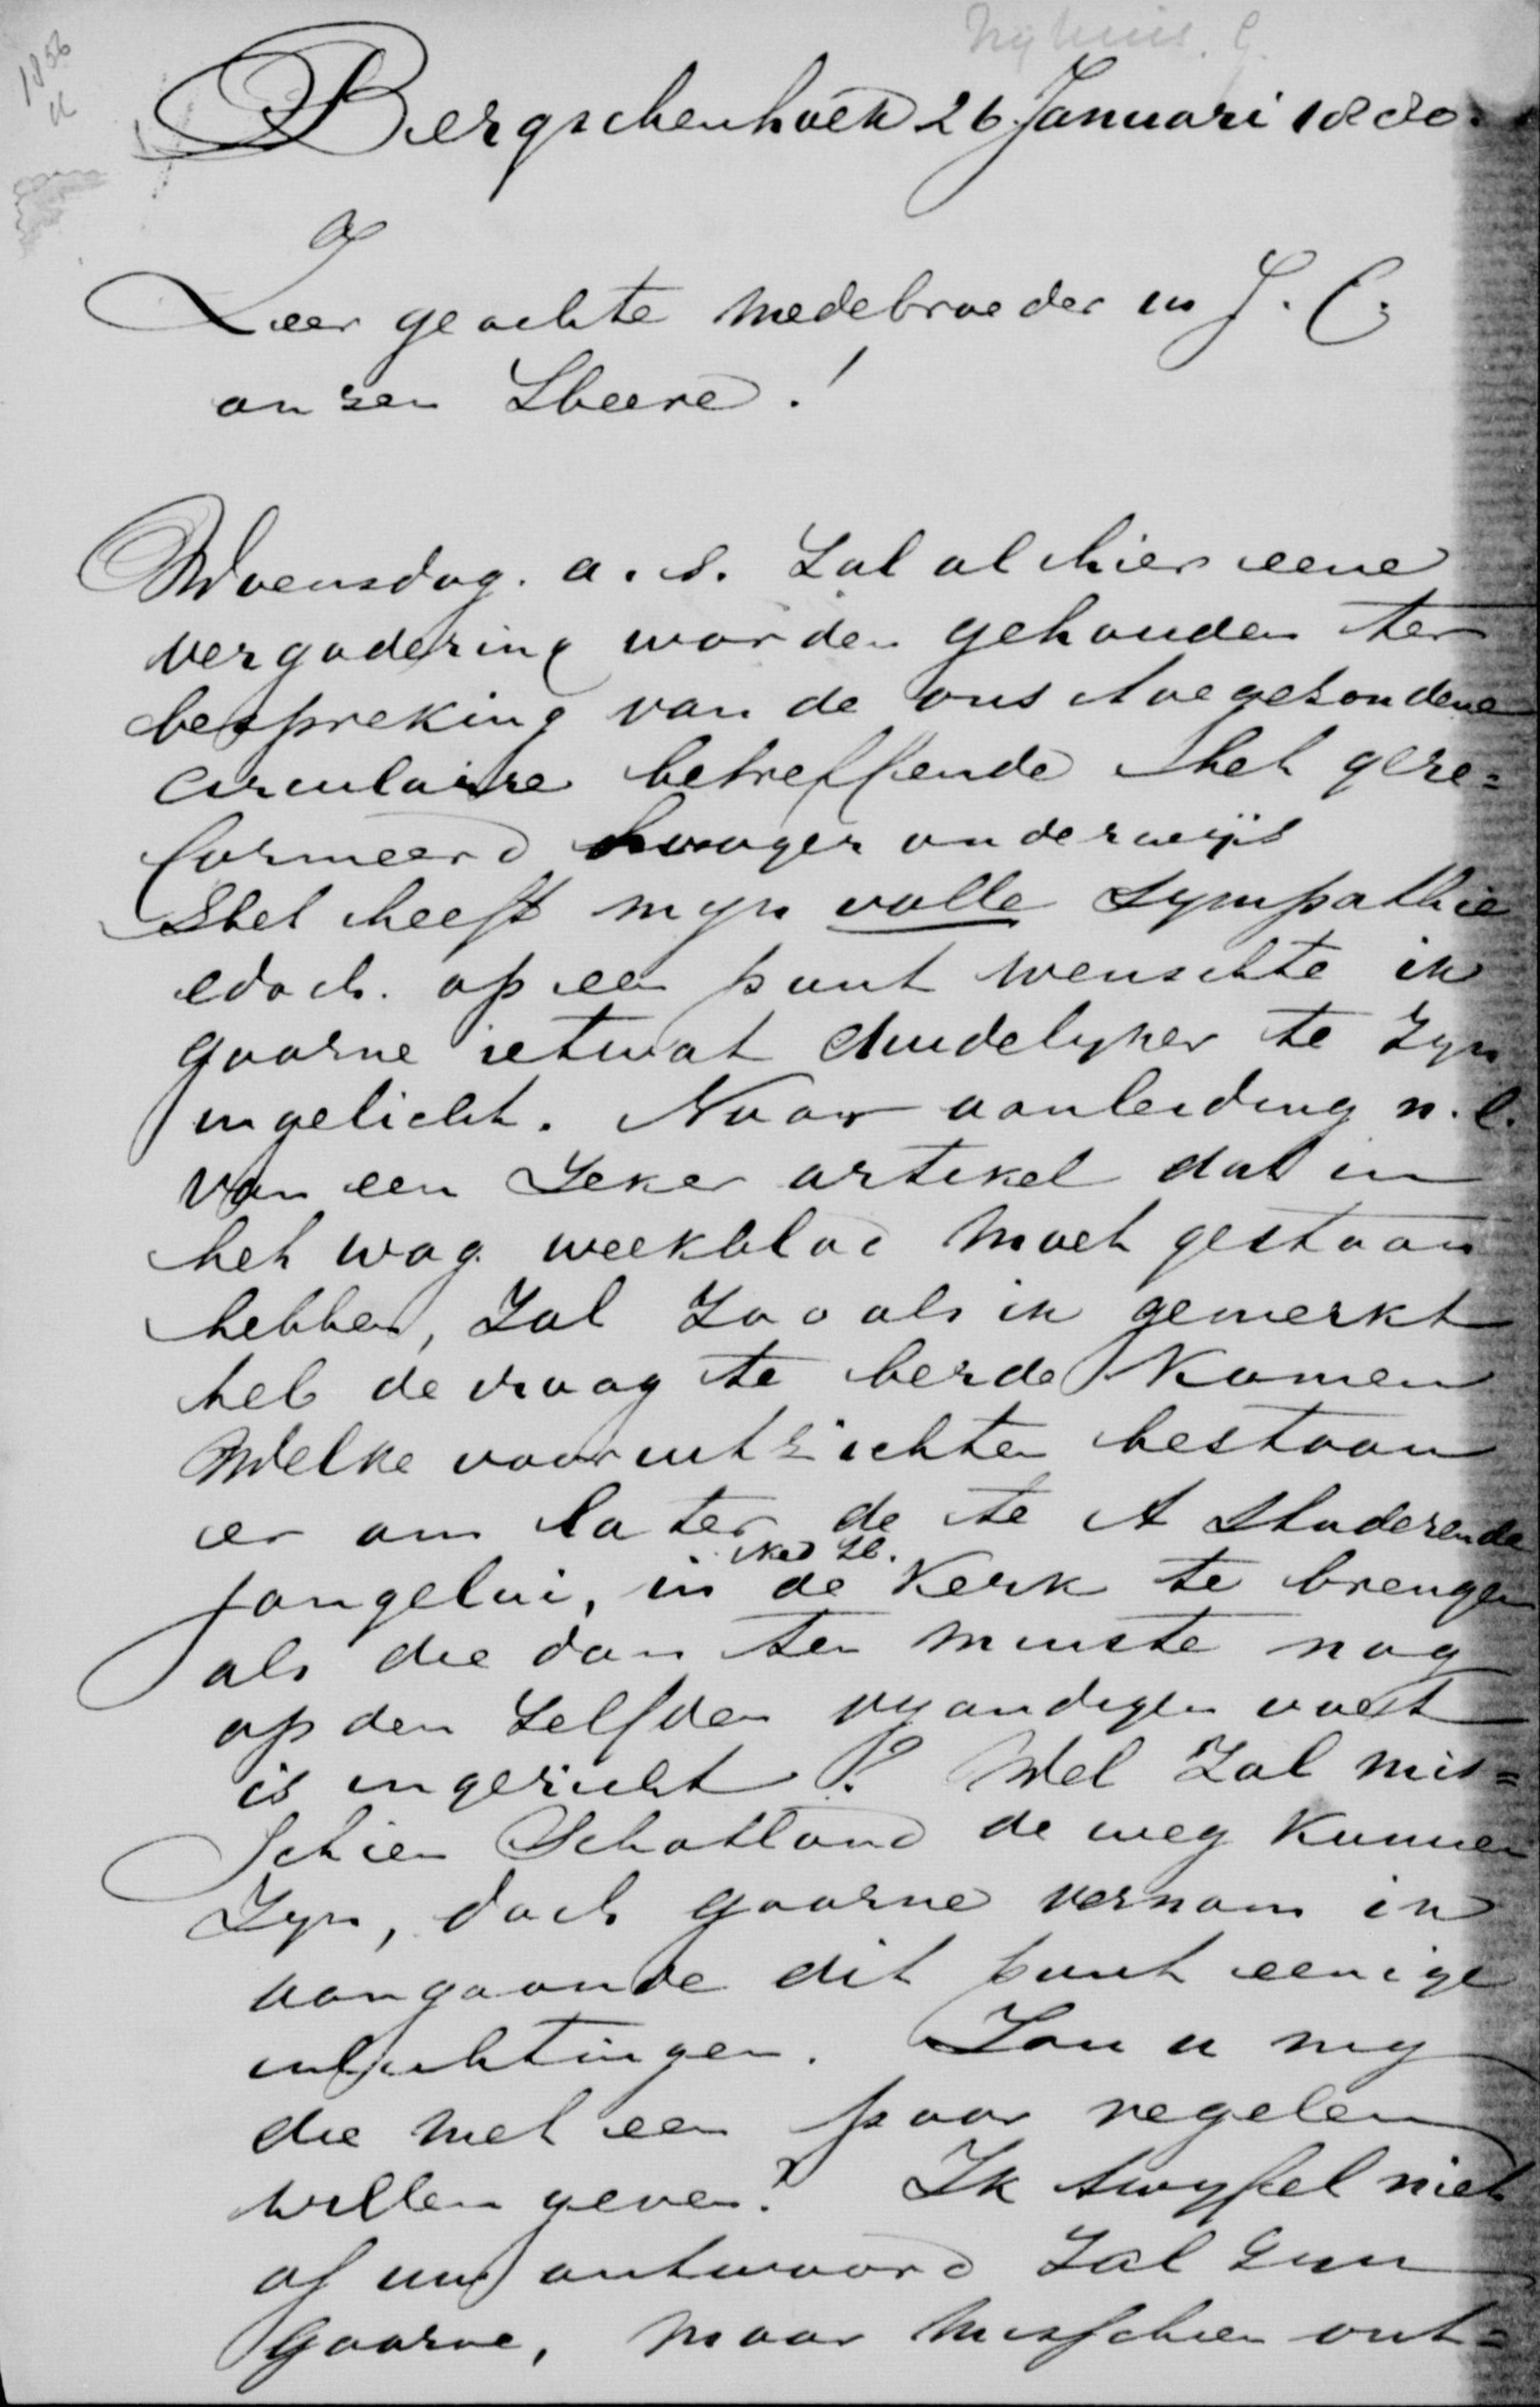 1856
Nyhuis. C.
Bergschenhoek 26 Januari 1880.
Zeer geachte medebroeder in J. C.
onzen Heere!
Woensdag. a. s. zal alhier eene
vergadering worden gehouden ter
bespreking van de ons toegezondene
circulaire betreffende het gere=
formeerd hooger onderwijs
Het heeft myn volle sympathie
edoch. op een punt wenschte ik
gaarne ietwat duidelyker te zyn
ingelicht. Naar aanleiding n. l.
van een zeker artikel dat in
het wag. weekblad moet gestaan
hebben, zal zooals ik gemerkt
heb de vraag te berde komen
Welke vooruitzichten bestaan
er om later de te A studerende
jongelui, in de Ned H. Kerk te brengen
als die dan ten minste nog
op den zelfden vyandigen voet
is ingericht? Wel zal mis=
schien Schotland de weg kunnen
zyn, doch gaarne vernam ik
aangaande dit punt eenige
inlichtingen. Zou u my
die met een paar regelen
willen geven? Ik twyfel niet
of uw antwoord zal zyn
gaarne, maar misschien ont=